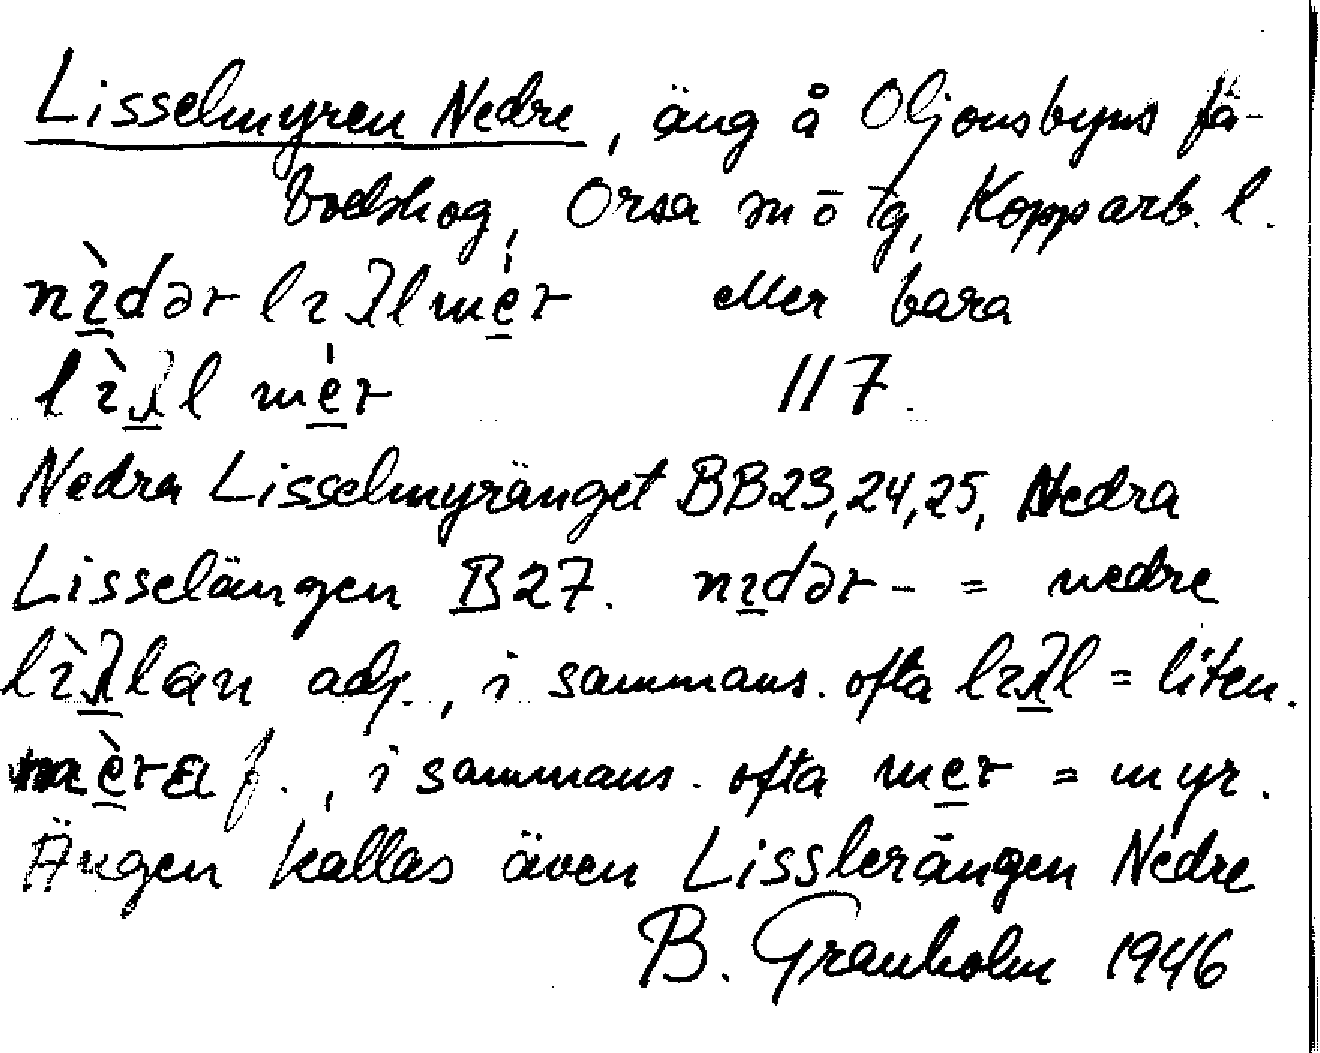 Lisselmyren Nedre, äng å Oljonsbyns fä-
bodskog, Orsa sn ö tg, Kopparb. l.
nì̱dər lıλlmé̱r eller bara
lìλ̱l mé̱r 117.
Nedra Lisselmyränget BB23,24,25, Nedra
Lisselängen B27. nı̱dər- = nedre
lìλ̱lan adj., i sammans. ofta lıλ̱l = liten.
mè̱ra f., i sammans. ofta me̱r = myr.
Ängen kallas även Lisslerängen Nedre
B. Granholm 1946